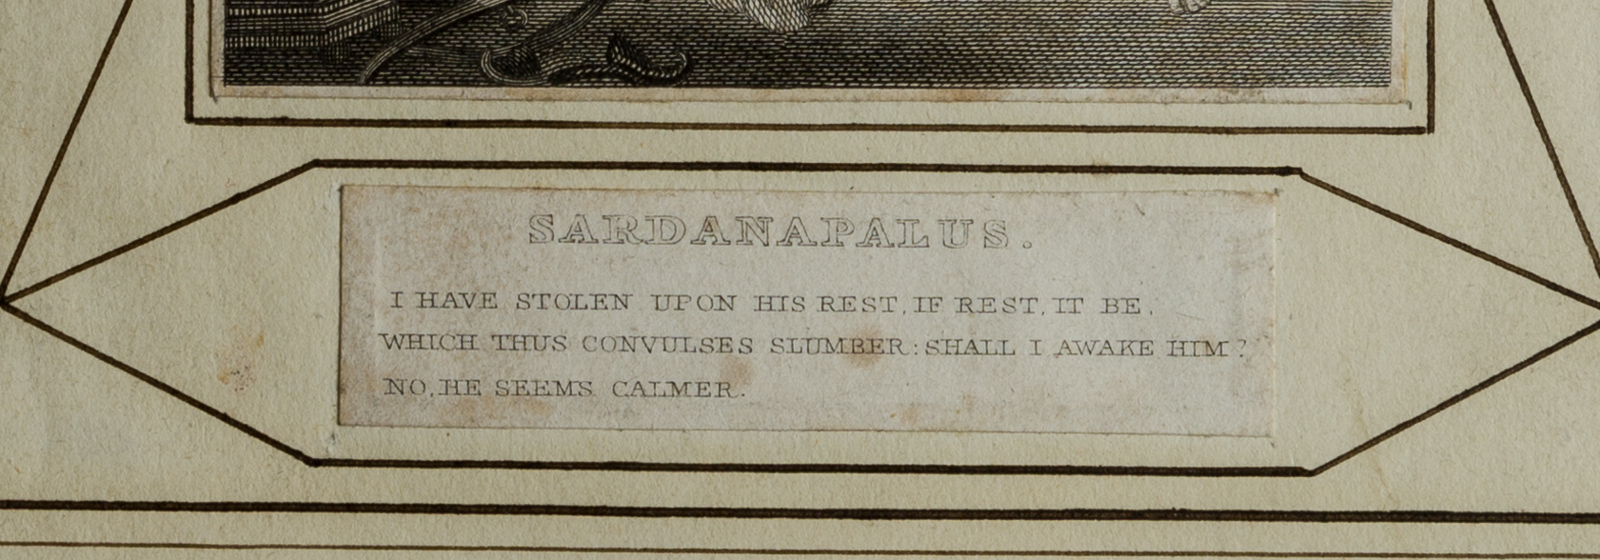 SARDANAPALUS.
I HAVE STOLEN UPON HIS REST, IF REST, IT BE,
WHICH THUS CONVULSES SLUMBER: SHALL I AWAKE HIM?
NO, HE SEEMS CALMER.